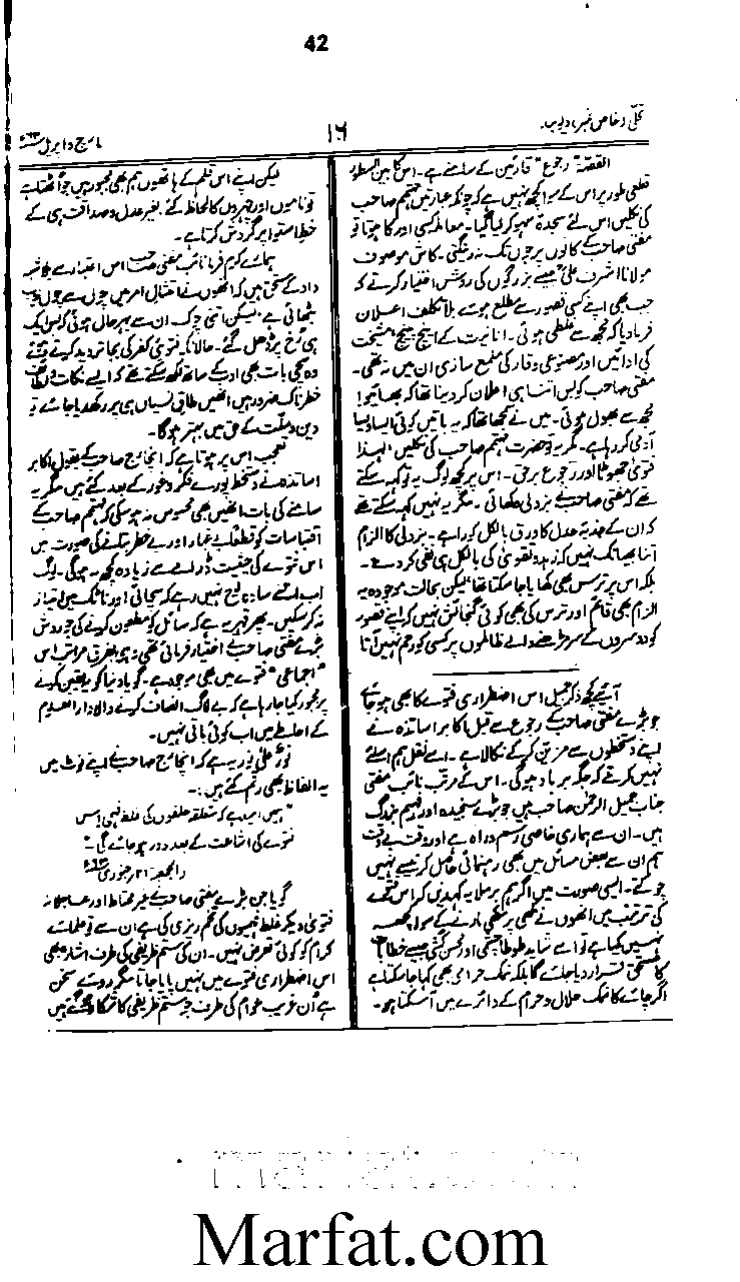 42
تجلّی (خاص نمبر) دیوبند
۱۶
مارچ و اپریل ۶۳ء
القصّہ "رجوع" قارئین کے سامنے ہے۔ اس کا بین السطور
قطعی طور پر اس کے سوا کچھ نہیں ہے کہ چونکہ عبارتیں مہتمم صاحب
کی نکلیں اس لئے سجدۂ سہو کر لیا گیا۔ معاملہ کسی اور کا ہوتا تو
مفتی صاحب کے کانوں پر جوں تک نہ رینگتی۔ کاش موصوف
مولانا اشرف علیؒ جیسے بزرگوں کی روش اختیار کرتے کہ
جب بھی اپنے کسی قصور سے مطلع ہوئے بلا تکلف اعلان
فرما دیا کہ مجھ سے غلطی ہوئی۔ انانیت کے ایچ پیچ مشیخت
کی ادائیں اور مصنوعی وقار کی ملمع سازی ان میں نہ تھی۔
مفتی صاحب کو بس اتنا ہی اعلان کر دینا تھا کہ بھائیو!
مجھ سے بھول ہوئی۔ میں نے سمجھا تھا کہ یہ باتیں کوئی ایسا ویسا
آدمی کر رہا ہے۔ مگر یہ تو حضرت مہتمم صاحب کی نکلیں لہٰذا
فتویٰ جھوٹا اور رجوع برحق۔ اس پر کچھ لوگ یہ تو کہہ سکتے
تھے کہ مفتی صاحب نے بزدلی دکھائی۔ مگر یہ نہیں کہہ سکتے تھے
کہ ان کے جذبۂ عدل کا ورق بالکل کورا ہے۔ بزدلی کا الزام
اتنا بھیانک نہیں کہ زہد و تقویٰ کی بالکل ہی نفی کر دے۔
بلکہ اس پر ترس بھی کھایا جا سکتا تھا لیکن بحالت موجودہ یہ
الزام بھی قائم اور ترس کی بھی کوئی گنجائش نہیں کہ اپنے قصور
کو دوسروں کے سر منڈھنے والے ظالموں پر کسی کو رحم نہیں آتا
آئیے کچھ ذکرِ جمیل اس اضطراری فتوے کا بھی ہو جائے
جو بڑے مفتی صاحب کے رجوع سے قبل اکابر اساتذہ نے
اپنے دستخطوں سے مزین کر کے نکالا ہے۔ اسے نقل ہم اسلئے
نہیں کرتے کہ جگہ برباد ہوگی۔ اس کے مرتب نائب مفتی
جناب جمیل الرحمٰن صاحب ہیں جو بڑے سنجیدہ اور فہیم بزرگ
ہیں۔ ان سے ہماری خاصی رسم و راہ ہے اور وقت بے وقت
ہم ان سے بعض مسائل میں بھی رہنمائی حاصل کرنے سے نہیں
چوکتے۔ ایسی صورت میں اگر ہم برملا یہ کہہ دیں کہ اس فتوے
کی ترتیب میں انھوں نے مکھی پر مکھی مارنے کے سوا کچھ
نہیں کیا ہے تو اسے شاید طوطا چشمی اور محسن کشی جیسے خطاب
کا مستحق قرار دیا جائے گا بلکہ نمک حرامی بھی کہا جا سکتا ہے
اگر چائے کا نمک حلال و حرام کے دائرے میں آ سکتا ہو۔
لیکن اپنے اس قلم کے ہاتھوں ہم بھی مجبور ہیں جو اٹھتا ہے
تو ناموں اور چہروں کا لحاظ کئے بغیر عدل و صداقت ہی کے
خطِ استوا پر گردش کرتا ہے۔
ہمارے کرم فرما نائب مفتی صاحب اس اعتبار سے بلاشبہ
داد کے مستحق ہیں کہ انھوں نے امتثالِ امر میں چول سے چول
بٹھائی ہے لیکن اتنی چوک ان سے بہر حال ہوئی کہ بس ایک
ہی رُخ پر ڈھل گئے۔ حالانکہ فتویٰ کفر کی بجا تردید کرتے ہوئے
وہ سچی بات بھی ادب کے ساتھ لکھ سکتے تھے کہ ایسے نکات و لطائف
خطرناک ضرور ہیں انھیں طاقِ نسیاں ہی پر رکھ دیا جائے تو
دین و ملّت کے حق میں بہتر ہوگا۔
تعجب اس پر ہوتا ہے کہ انچارج صاحب کے بقول اکابر
اساتذہ نے دستخط پورے فکر و غور کے بعد کئے ہیں مگر یہ
سامنے کی بات انھیں بھی محسوس نہ ہو سکی کہ مہتمم صاحب کے
اقتباسات کو قطعاً بے غبار اور بے خطر بتانے کی صورت میں
اس فتوے کی حیثیت ڈرامے سے زیادہ کچھ نہ ہوگی۔ لوگ
اب اتنے سادہ لوح نہیں رہے کہ سچائی اور ناٹک میں امتیاز
نہ کر سکیں۔ پھر قہر یہ ہے کہ سائل کو مطعون کرنے کی جو روش
بڑے مفتی صاحب نے اختیار فرمائی تھی وہ بفرقِ مراتب اس
"اجماعی" فتوے میں بھی موجود ہے۔ گویا دنیا کو یہ یقین کرنے
پر مجبور کیا جا رہا ہے کہ بے لاگ انصاف کرنے والا دارالعلوم
کے احاطے میں اب کوئی باقی نہیں۔
نورٌ علیٰ نور یہ ہے کہ انچارج صاحب نے اپنے نوٹ میں
یہ الفاظ بھی رقم کئے ہیں:۔
"ہمیں امید ہے کہ متعلقہ حلقوں کی غلط فہمی اس
فتوے کی اشاعت کے بعد دور ہو جائے گی۔"
(الجمعیۃ ۲۱ر جنوری ۶۳ء)
گویا جن بڑے مفتی صاحب نے غیر محتاط اور عاجلانہ
فتویٰ دیکر غلط فہمیوں کی تخم ریزی کی ہے ان سے تو علمائے
کرام کو کوئی تعرض نہیں۔ ان کی ستم ظریفی کی طرف اشارہ بھی
اس اضطراری فتوے میں نہیں پایا جاتا مگر روئے سخن
ہے اُن غریب عوام کی طرف جو ستم ظریفی کا شکار ہو گئے ہیں
Marfat.com